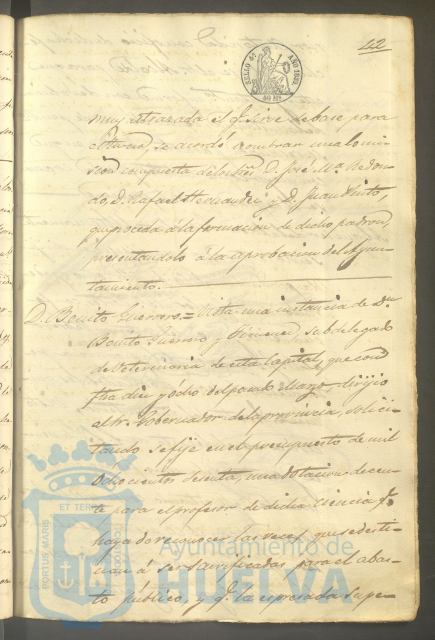 42
SELLO 4º AÑO 1860
muy atrasada el q.e sirve de base para
el turno, se acordó nombrar una Comi-
sion compuesta de los Sres. D. José M.a Redon-
do, D. Rafael Hernandez y D. Juan Quinto,
que proceda á la formacion de dicho padron,
presentandolo á la aprobacion del Ayun-
tamiento.
D. Benito Guerrero.= Vista una instancia de Dn
Benito Guerrero y Gimenez, subdelegado
de Veterinaria de esta Capital, que con
fha diez y ocho del pasado Marzo, dirijio
al Sr. Gobernador de la provincia, solici-
tando se fije en el presupuesto de mil
ochocientos sesenta, una dotacion decen-
te para el profesor de dicha ciencia q.e
haya de reconocer las reces que se desti-
nan á ser sacrificadas para el abas-
to público, y q.e la espresada Supe-
ET TERRÆ
PORTUS MARIS
CUSTODIA
Ayuntamiento de
HUELVA